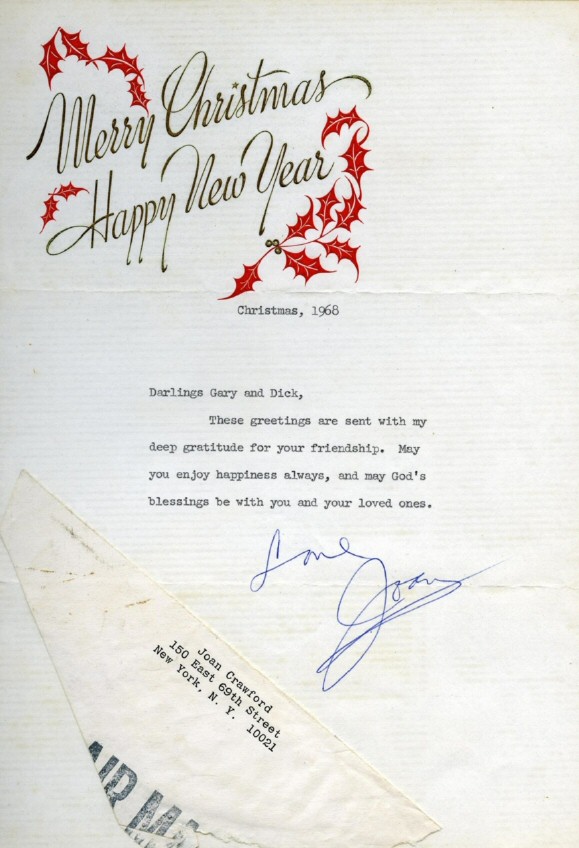 Merry Christmas
Happy New Year
Christmas, 1968
Darlings Gary and Dick,
These greetings are sent with my
deep gratitude for your friendship. May
you enjoy happiness always, and may God's
blessings be with you and your loved ones.
Love
Joan
Joan Crawford
150 East 69th Street
New York, N. Y. 10021
AIR MA